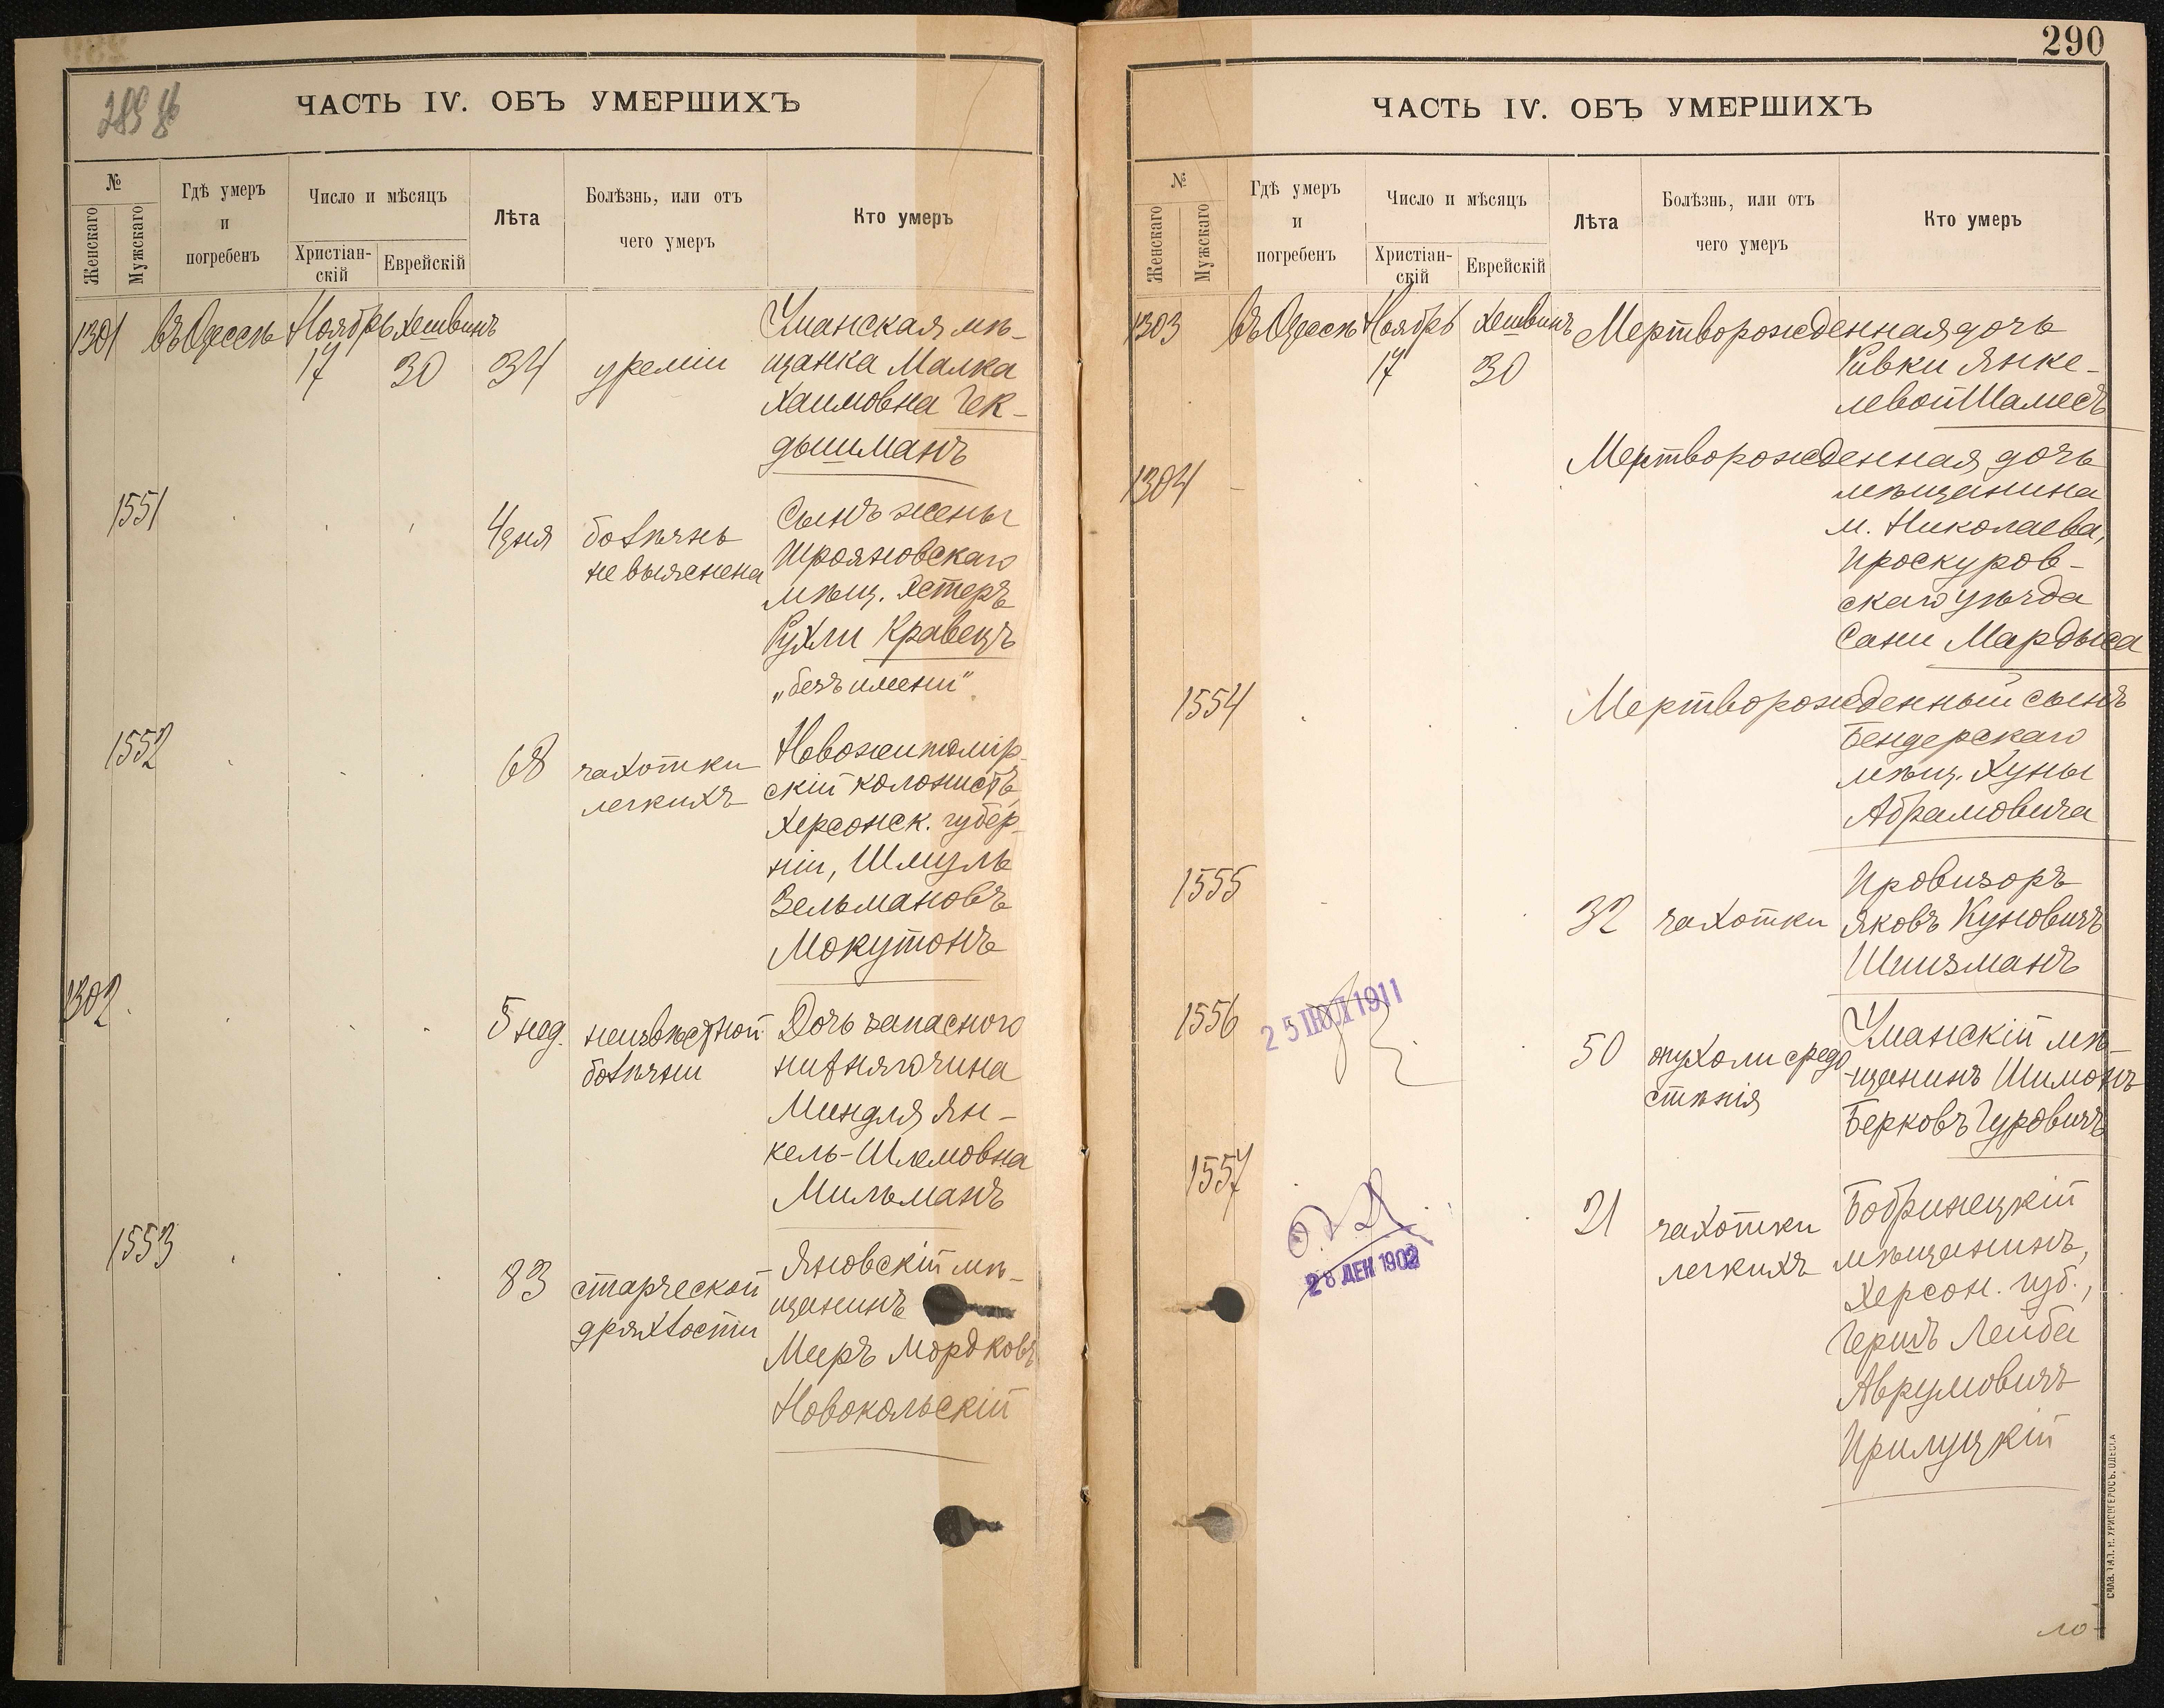 289 об
ЧАСТЬ IV. ОБЪ УМЕРШИХЪ
№
Женскаго
Мужскаго
Гдѣ умеръ
и
погребенъ
Число и мѣсяцъ
Христіан-
скій
Еврейскій
Лѣта
Болѣзнь, или отъ
чего умеръ
Кто умеръ
1301 въ Одессѣ Ноябрь Хешвинъ
17 30 34 уреміи
Уманская мѣ-
щанка Малка
Хаимовна Гек-
дышманъ
1551
4 дня болѣзнь
не выяснена
Сынъ жены
Трояновскаго
мѣщ. Эстеръ
Рухли Кравецъ
„безъ имени"
1552
68 чахотки
легкихъ
Новожитомір-
скій колонистъ,
Херсонск. губер-
ніи, Шмуль
Зельмановъ
Мокутонъ
1302.
5 нед. неизвѣстной
болѣзни
Дочь запасного
Миндля Ян-
кель-Шлемовна
Мильманъ
1553
83 старческой
дряхлости
Яновскій мѣ-
щанинъ
Меръ Мордковъ
Новокольскій
290
ЧАСТЬ IV. ОБЪ УМЕРШИХЪ
№
Женскаго
Мужскаго
Гдѣ умеръ
и
погребенъ
Число и мѣсяцъ
Христіан-
скій
Еврейскій
Лѣта
Болѣзнь, или отъ
чего умеръ
Кто умеръ
1303 въ Одессѣ Ноябрь Хешвинъ
17 30
Мертворожденная дочь
Ривки Янке-
левой Шамесъ
1304
Мертворожденная дочь
мѣщанина
м. Николаева,
Проскуров-
скаго уѣзда
Сани Мардыса
1554
Мертворожденный сынъ
Бендерскаго
мѣщ. Хуны
Абрамовича
1555
32 чахотки
Провизоръ
Яковъ Куновичъ
Шпизманъ
1556
25 ІЮЛ 1911
50 опухоли средо
стѣнія
Уманскій мѣ-
щанинъ Шимонъ
Берковъ Гуровичъ
1557
28 ДЕК 1902
21 чахотки
легкихъ
Бобринецкій
мѣщанинъ,
Херсон. губ.,
Гершъ Лейба
Аврумовичъ
Прилуцкій
СЛАВ. ТИП. Н. ХРИСОГЕЛОСЪ. ОДЕССА